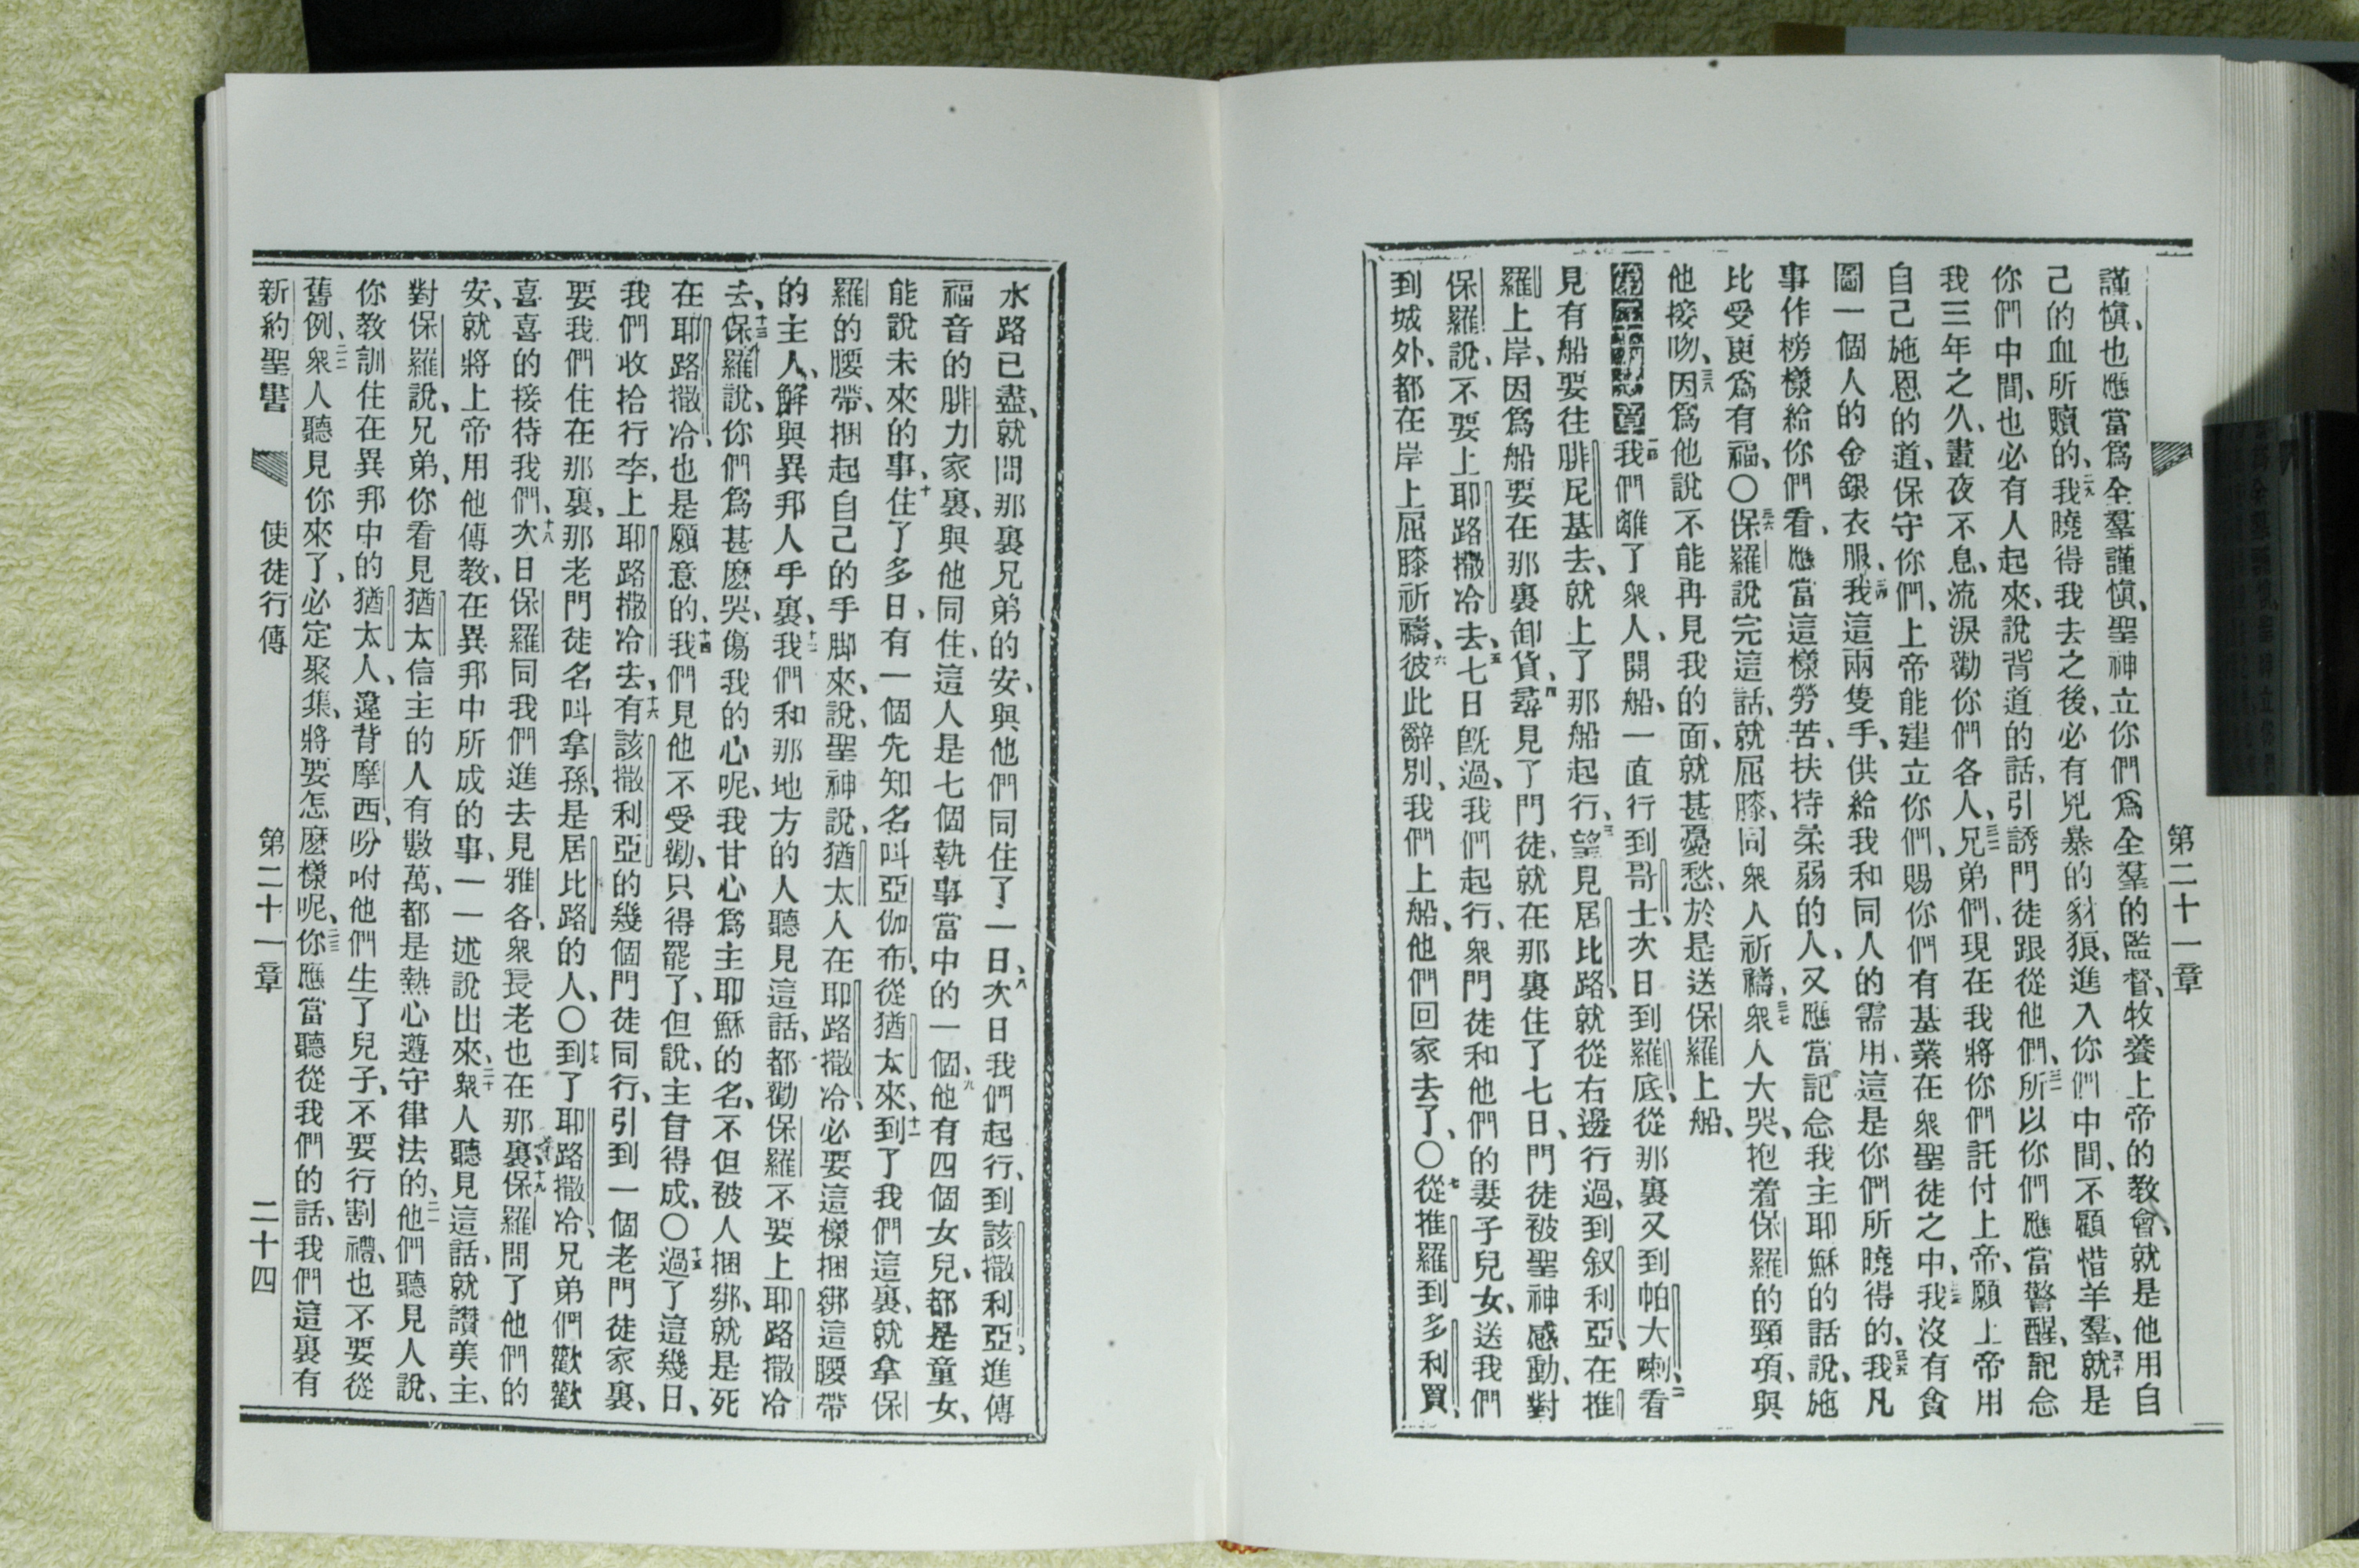 第二十一章
謹愼、也應當爲全羣謹愼、聖神立你們爲全羣的監督、牧養上帝的教會、就是他用自
己的血所贖的、二九我曉得我去之後、必有兇暴的豺狼、進入你們中間、不顧惜羊羣、三十就是
你們中間、也必有人起來、說背道的話、引誘門徒跟從他們、三一所以你們應當警醒、記念
我三年之久、晝夜不息、流淚勸你們各人、三二兄弟們、現在我將你們託付上帝、願上帝用
自己施恩的道、保守你們、上帝能建立你們、賜你們有基業在衆聖徒之中、三三我沒有貪
圖一個人的金銀衣服、三四我這兩隻手、供給我和同人的需用、這是你們所曉得的、三五我凡
事作榜樣給你們看、應當這樣勞苦、扶持柔弱的人、又應當記念我主耶穌的話說、施
比受更爲有福、〇三六保羅說完這話、就屈膝、同衆人祈禱、三七衆人大哭、抱着保羅的頸項、與
他接吻、三八因爲他說不能再見我的面、就甚憂愁、於是送保羅上船、
第二十一章一我們離了衆人、開船、一直行到哥士、次日到羅底、從那裏又到帕大喇、二看
見有船要往腓尼基去、就上了那船起行、三望見居比路、就從右邊行過、到叙利亞、在推
羅上岸、因爲船要在那裏卸貨、四尋見了門徒、就在那裏住了七日、門徒被聖神感動、對
保羅說、不要上耶路撒冷去、五七日旣過、我們起行、衆門徒和他們的妻子兒女、送我們
到城外、都在岸上屈膝祈禱、六彼此辭別、我們上船、他們回家去了、〇七從推羅到多利買、
水路已盡、就問那裏兄弟的安、與他們同住了一日、八次日我們起行、到該撒利亞、進傳
福音的腓力家裏、與他同住、這人是七個執事當中的一個、九他有四個女兒、都是童女、
能說未來的事、十住了多日、有一個先知名叫亞伽布、從猶太來、十一到了我們這裏、就拿保
羅的腰帶、捆起自己的手脚來、說、聖神說、猶太人在耶路撒冷、必要這樣捆綁這腰帶
的主人、解與異邦人手裏、十二我們和那地方的人聽見這話、都勸保羅不要上耶路撒冷
去、十三保羅說、你們爲甚麽哭、傷我的心呢、我甘心爲主耶穌的名、不但被人捆綁、就是死
在耶路撒冷、也是願意的、十四我們見他不受勸、只得罷了、但說、主旨得成、〇十五過了這幾日、
我們收拾行李、上耶路撒冷去、十六有該撒利亞的幾個門徒同行、引到一個老門徒家裏、
要我們住在那裏、那老門徒名叫拿孫、是居比路的人、〇十七到了耶路撒冷、兄弟們歡歡
喜喜的接待我們、十八次日保羅同我們進去見雅各、衆長老也在那裏、十九保羅問了他們的
安、就將上帝用他傳教、在異邦中所成的事、一一述說出來、二十衆人聽見這話、就讚美主、
對保羅說、兄弟、你看見猶太信主的人有數萬、都是熱心遵守律法的、二一他們聽見人說、
你教訓住在異邦中的猶太人、違背摩西、吩咐他們生了兒子、不要行割禮、也不要從
舊例、二二衆人聽見你來了、必定聚集、將要怎麽樣呢、二三你應當聽從我們的話、我們這裏有
新約聖書 使徒行傳 第二十一章 二十四